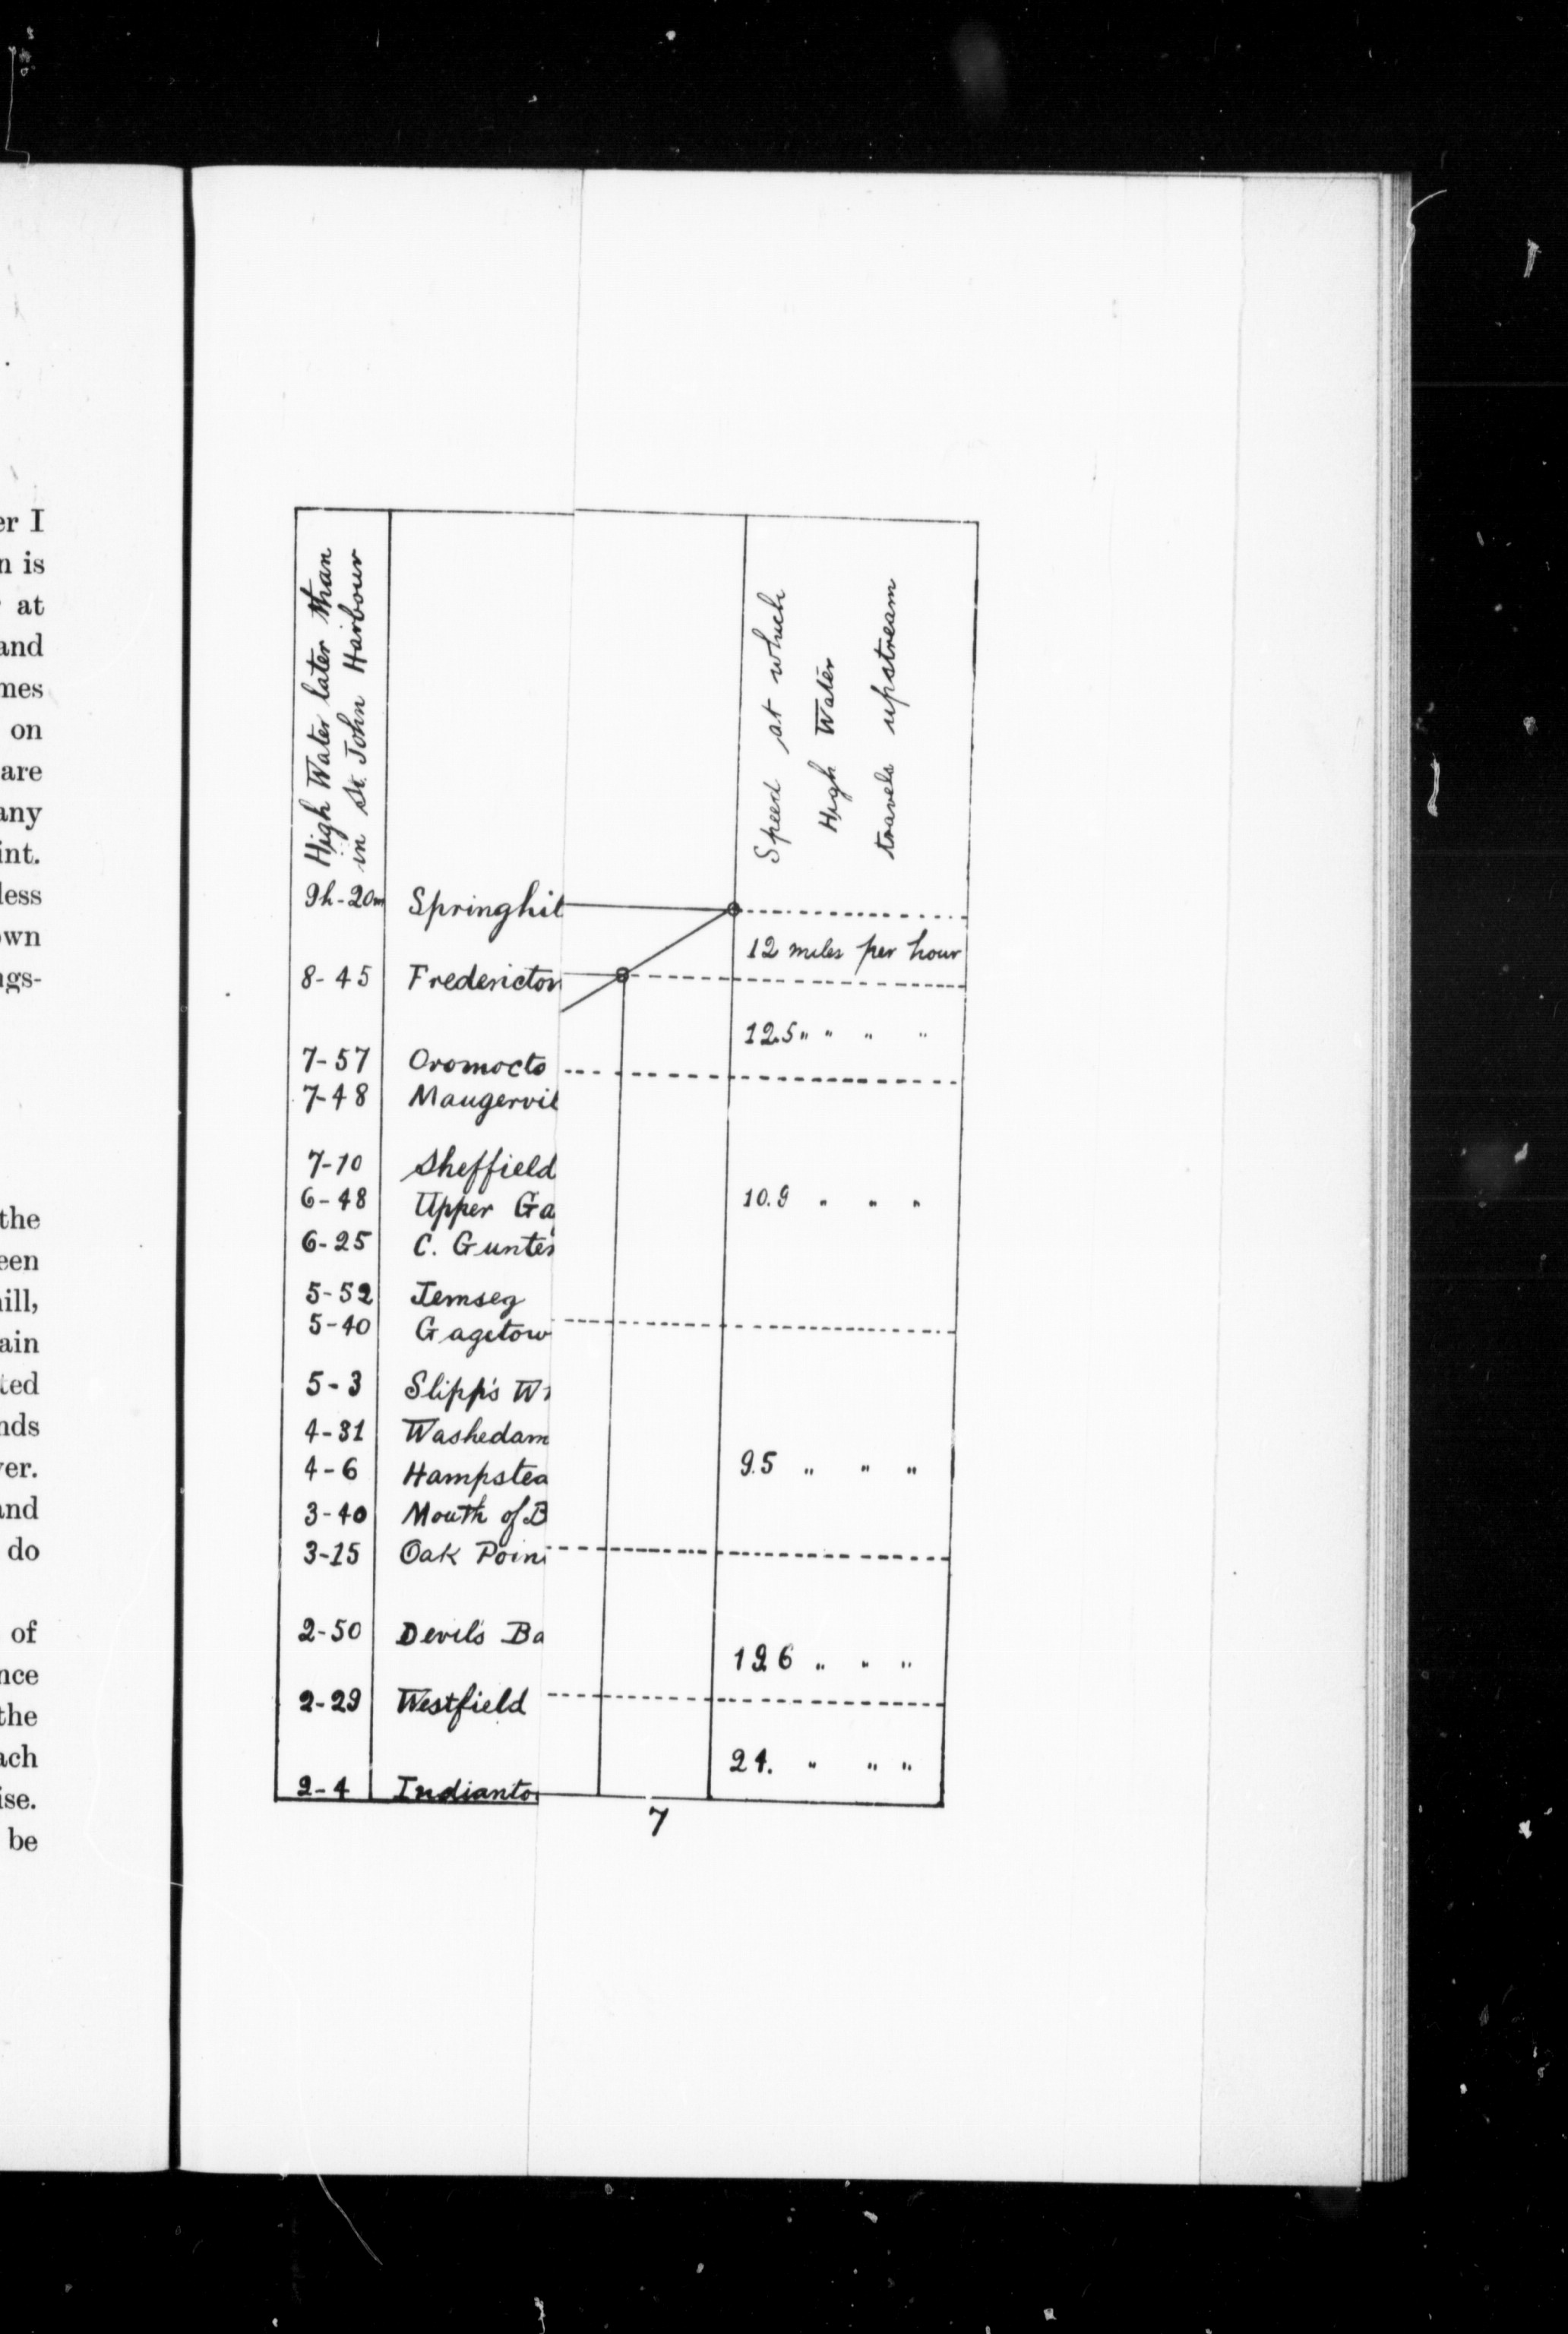 er I
n is
at
and
mes
on
are
any
int.
less
own
ngs-
the
een
ill,
ain
ted
nds
ver.
and
do
of
nce
the
ach
ise.
be
High Water later than
in St. John Harbour
Speed at which
High Water
travels upstream
9h-20m Springhil
12 miles per hour
8-45 Fredericton
12.5 " " " "
7-57 Oromocto
7-48 Maugervil
7-10 Sheffield
6-48 Upper Ga
10.9 " " "
6-25 C. Gunter
5-52 Jemseg
5-40 Gagetow
5-3 Slipp's W
4-31 Washedam
4-6 Hampstea
9.5 " " "
3-40 Mouth of B
3-15 Oak Poin
2-50 Devil's Ba
19.6 " " "
2-29 Westfield
24. " " "
2-4 Indianto
7